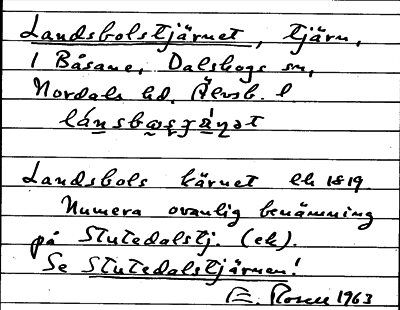 Landsbolstjärnet, tjärn,
i Båsane, Dalskogs sn,
Nordals hd. Älvsb. l.
Landsbols kärnet ek 1819
Numera ovanlig benämning
på Stutedalstj. (ek).
Se Stutedalstjärnen!
E. Rosell 1963